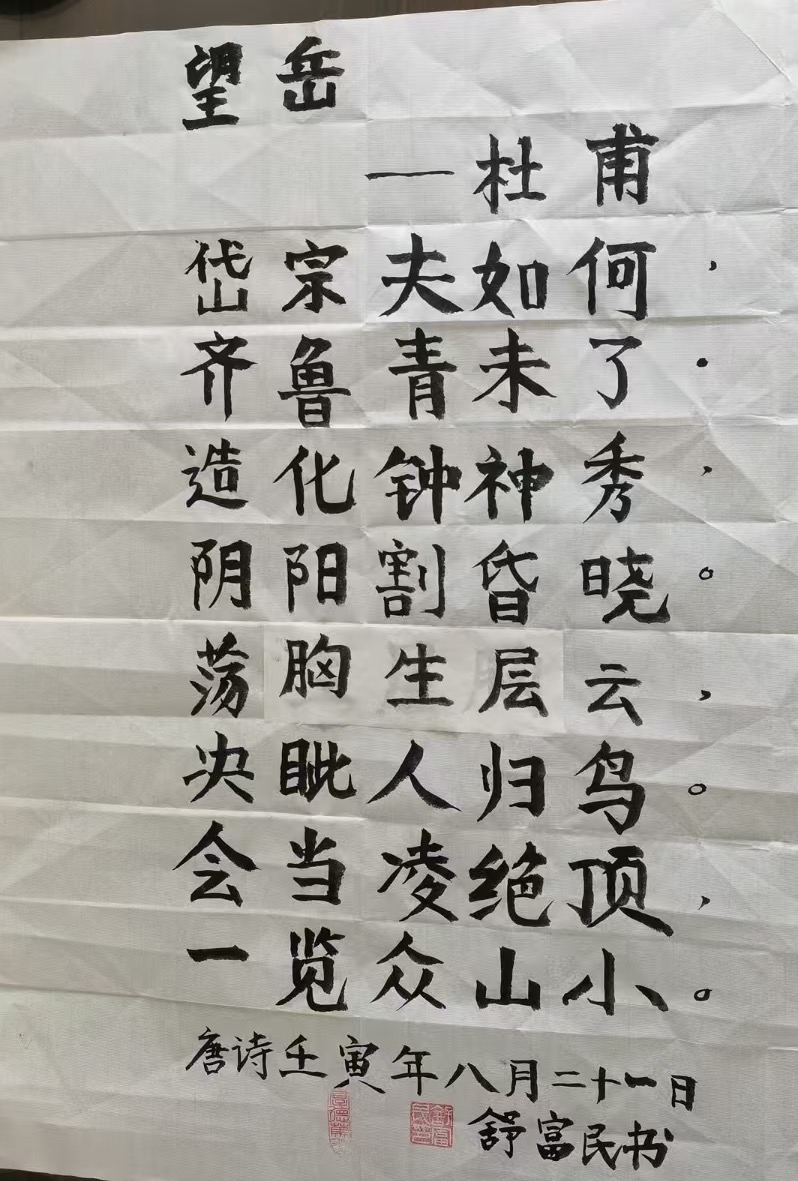 望岳
—杜甫
岱宗夫如何，
齐鲁青未了。
造化钟神秀，
阴阳割昏晓。
荡胸生层云，
决眦人归鸟。
会当凌绝顶，
一览众山小。
唐诗壬寅年八月二十一日
舒富民书